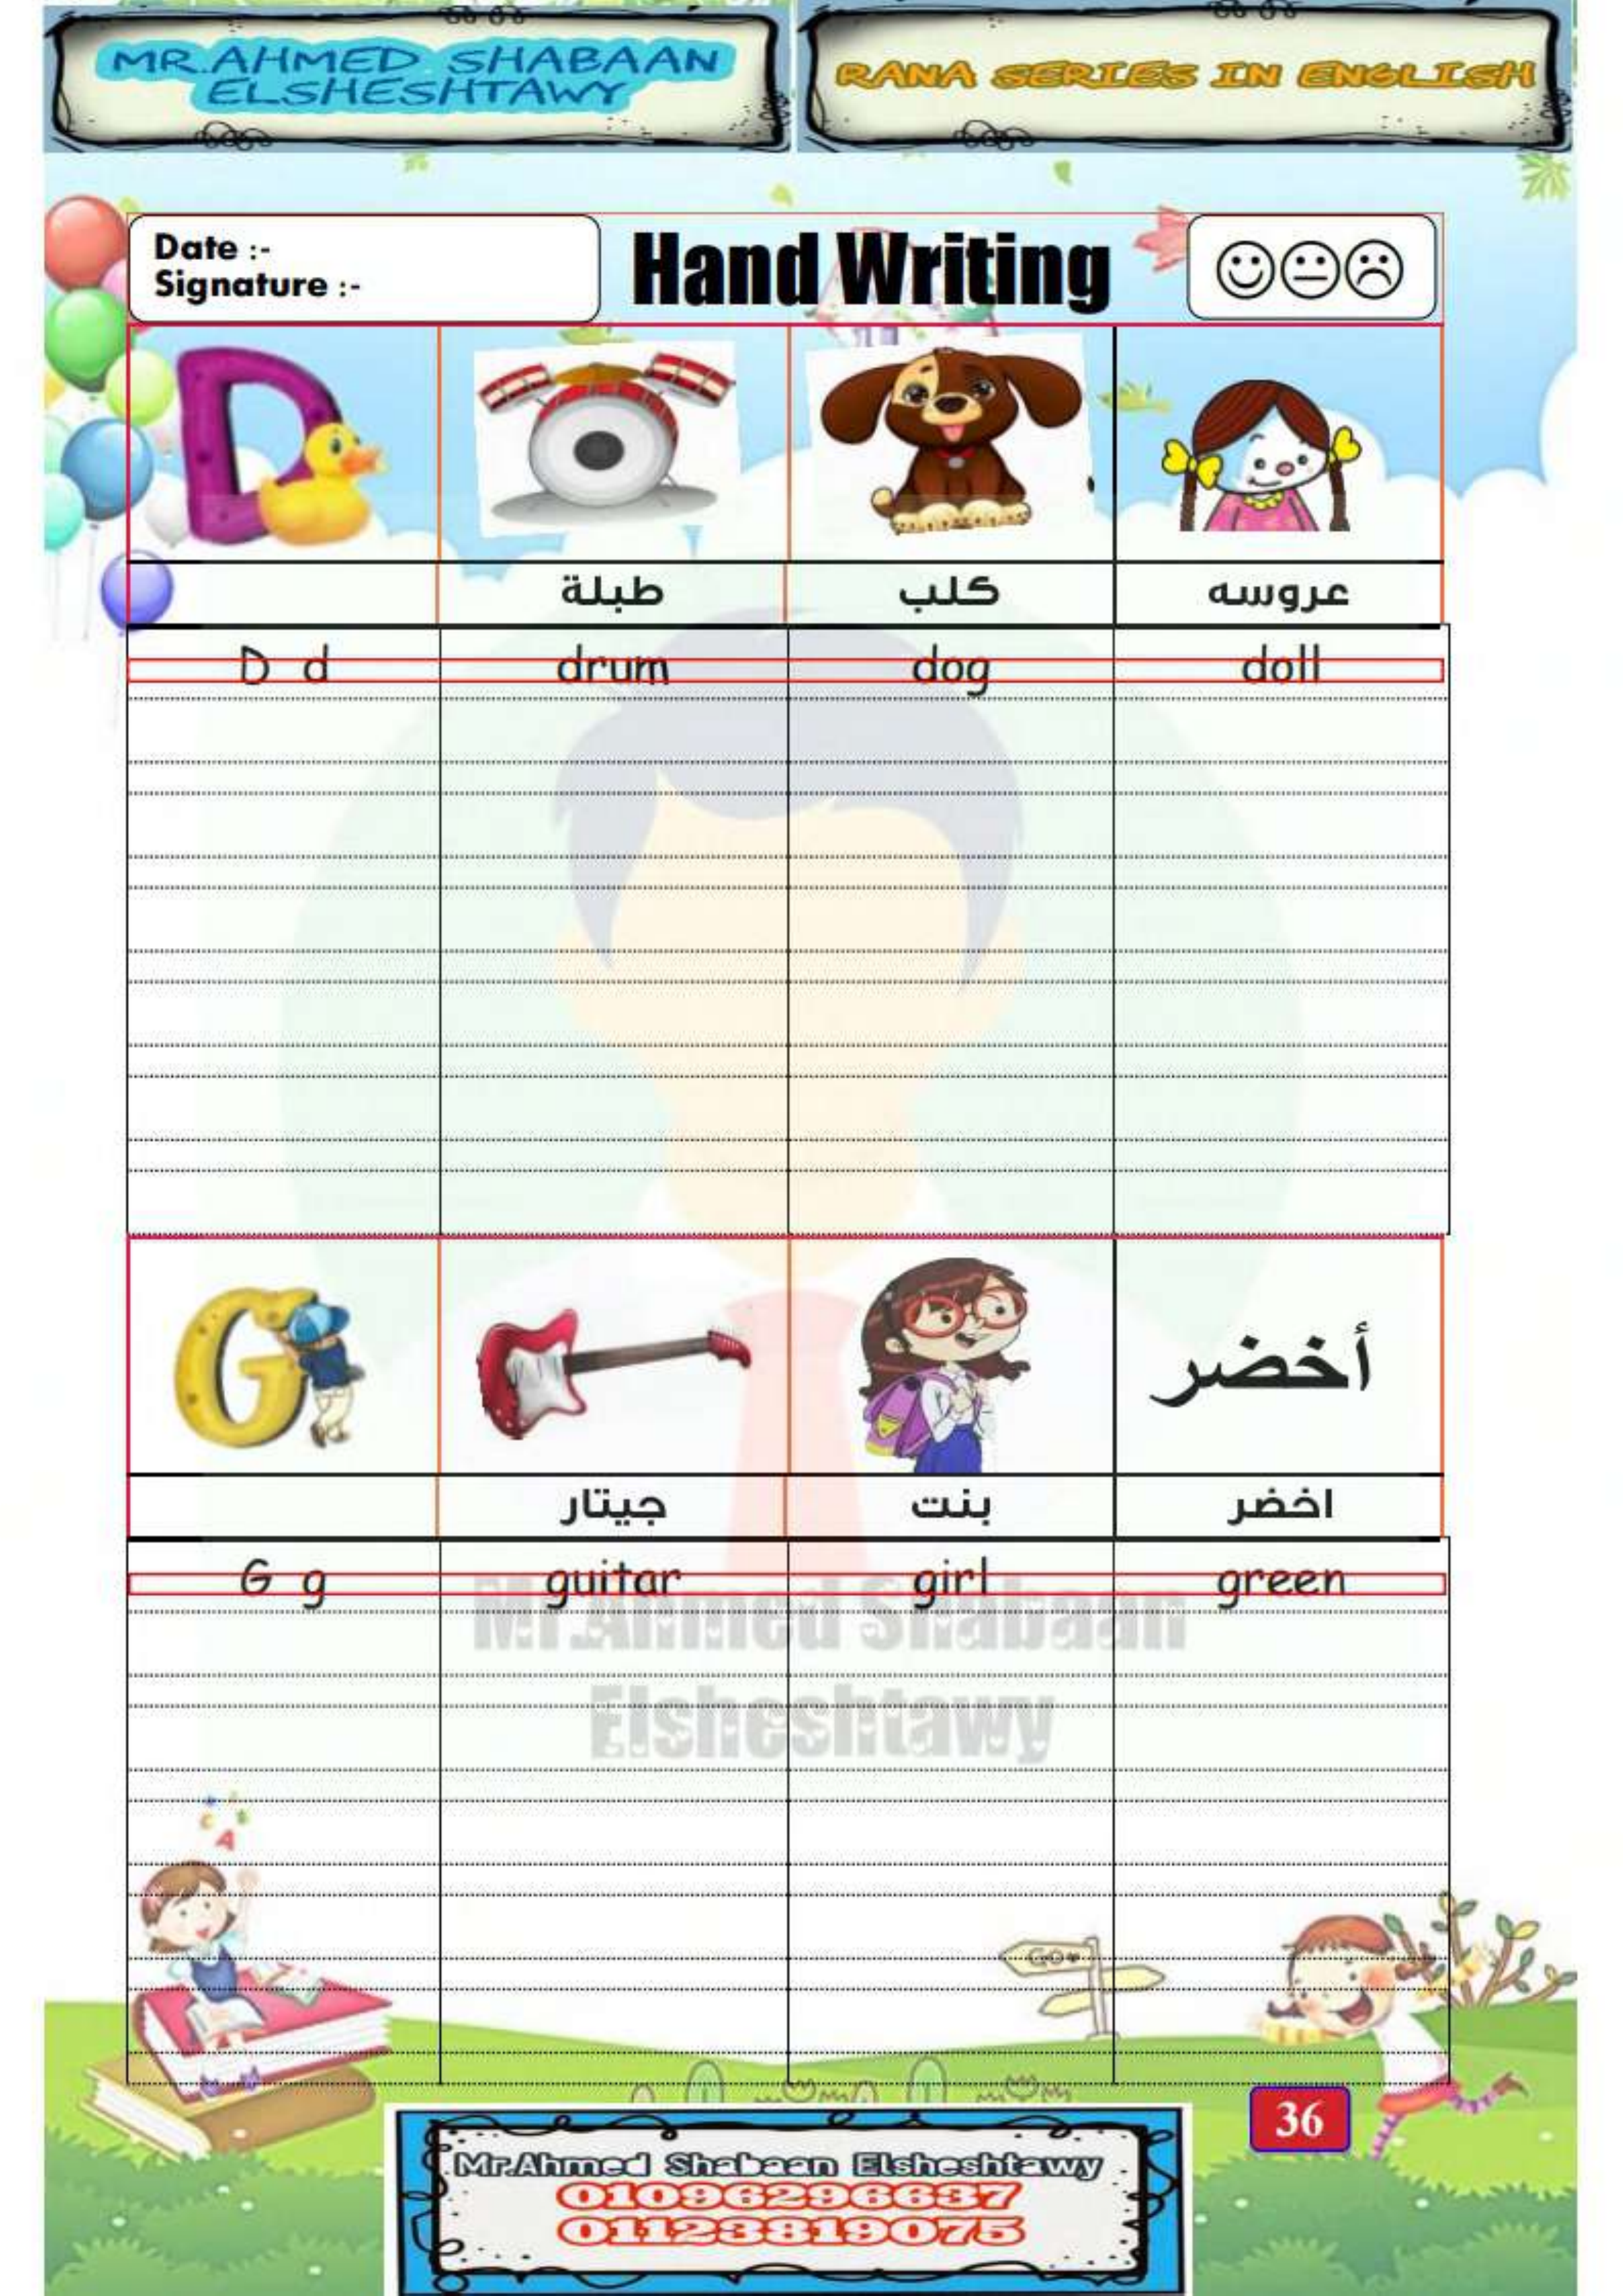 MR.AHMED SHABAAN
ELSHESHTAWY
RANA SERIES IN ENGLISH
Date :-
Signature :-
Hand Writing
D
طبلة كلب عروسه
D d drum dog doll
G أخضر
جيتار بنت اخضر
G g guitar girl green
Mr.Ahmed Shabaan
Elsheshtawy
A
Go
36
Mr.Ahmed Shabaan Elsheshtawy
01096296637
01123819075